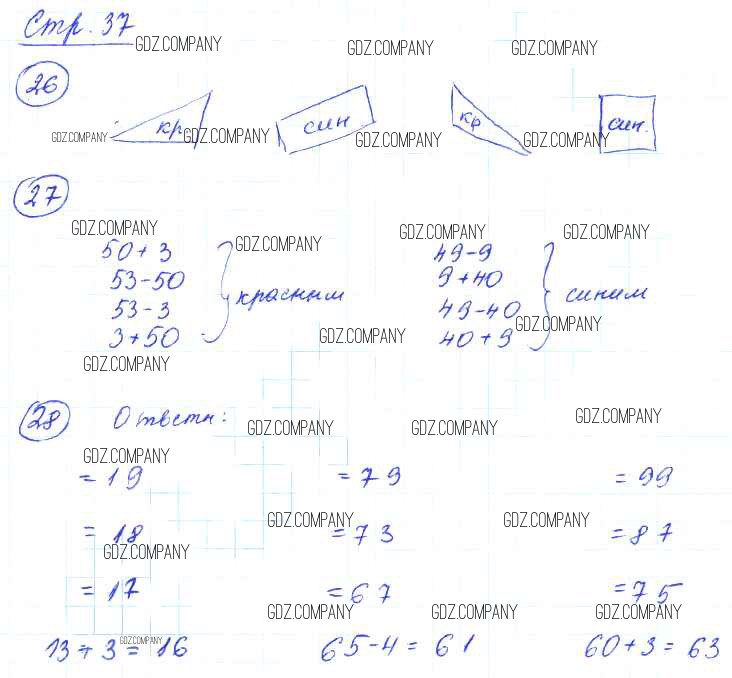 Стр. 37
GDZ.COMPANY GDZ.COMPANY GDZ.COMPANY
26
кр. син кр син.
GDZ.COMPANY GDZ.COMPANY GDZ.COMPANY GDZ.COMPANY
27
GDZ.COMPANY GDZ.COMPANY GDZ.COMPANY GDZ.COMPANY
50+3 49-9
53-50 9+40
красным синим
53-3 49-40
GDZ.COMPANY GDZ.COMPANY
3+50 40+9
GDZ.COMPANY
28 Ответы:
GDZ.COMPANY GDZ.COMPANY GDZ.COMPANY
GDZ.COMPANY
=19 =79 =99
GDZ.COMPANY GDZ.COMPANY
=18 =73 =87
GDZ.COMPANY
=17 =67 =75
GDZ.COMPANY GDZ.COMPANY GDZ.COMPANY
GDZ.COMPANY
13+3=16 65-4=61 60+3=63